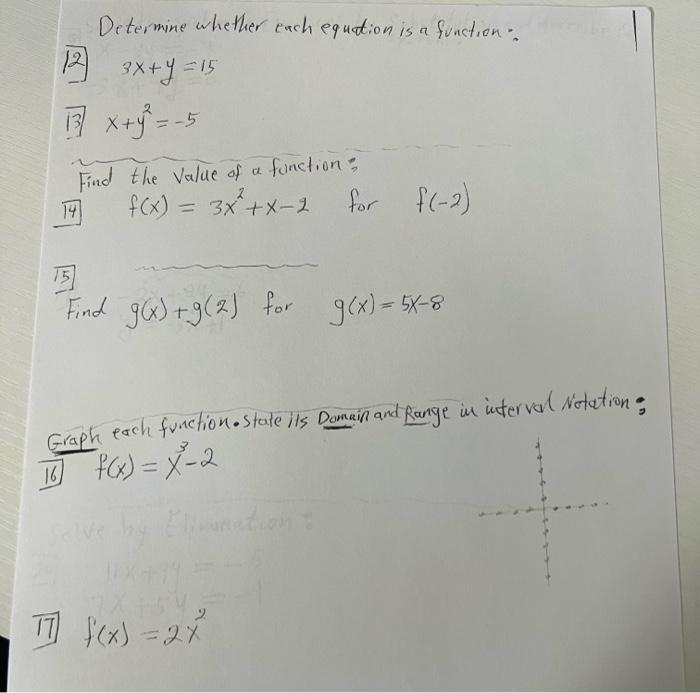 Determine whether each equation is a function:
12 3x+y=15
13 x+y²=-5
Find the value of a function:
14 f(x) = 3x²+x-2 for f(-2)
15
Find g(x)+g(2) for g(x)=5x-8
Graph each function. State its Domain and Range in interval Notation:
16 f(x)=x³-2
Solve by Elimination:
17 f(x)=2x²